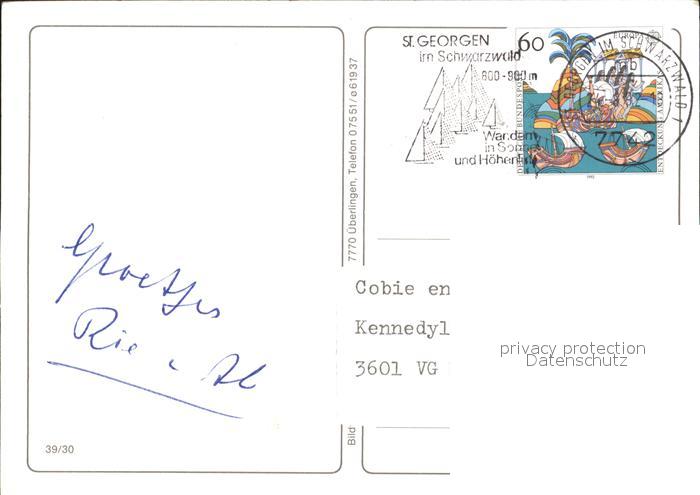 ST. GEORGEN
im Schwarzwald
800-900m
Wandern
in Sonne
und Höhenluft
60
EUROPA
DEUTSCHE BUNDESPOST
ENTDECKUNG AMERIKAS
1992
ST GEORGEN IM SCHWARZWALD 1
mb
7742
7770 Überlingen, Telefon 07551/ø61937
Bild
Groetjes
Rie
Cobie en
Kennedyl
3601 VG
privacy protection
Datenschutz
39/30